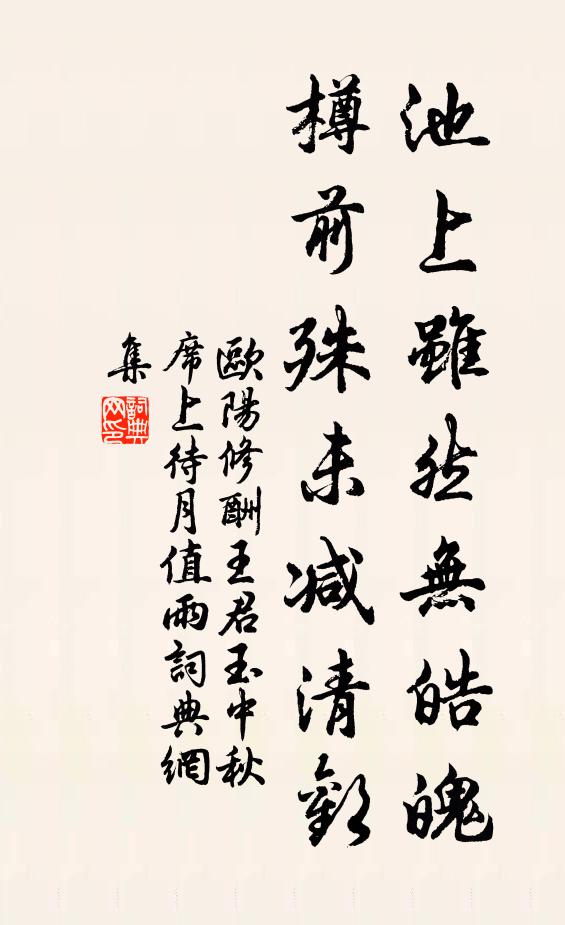 池上雖然無皓魄
樽前殊未減清歡
歐陽修酬王君玉中秋
席上待月值雨詞典網
集
詞典
网印